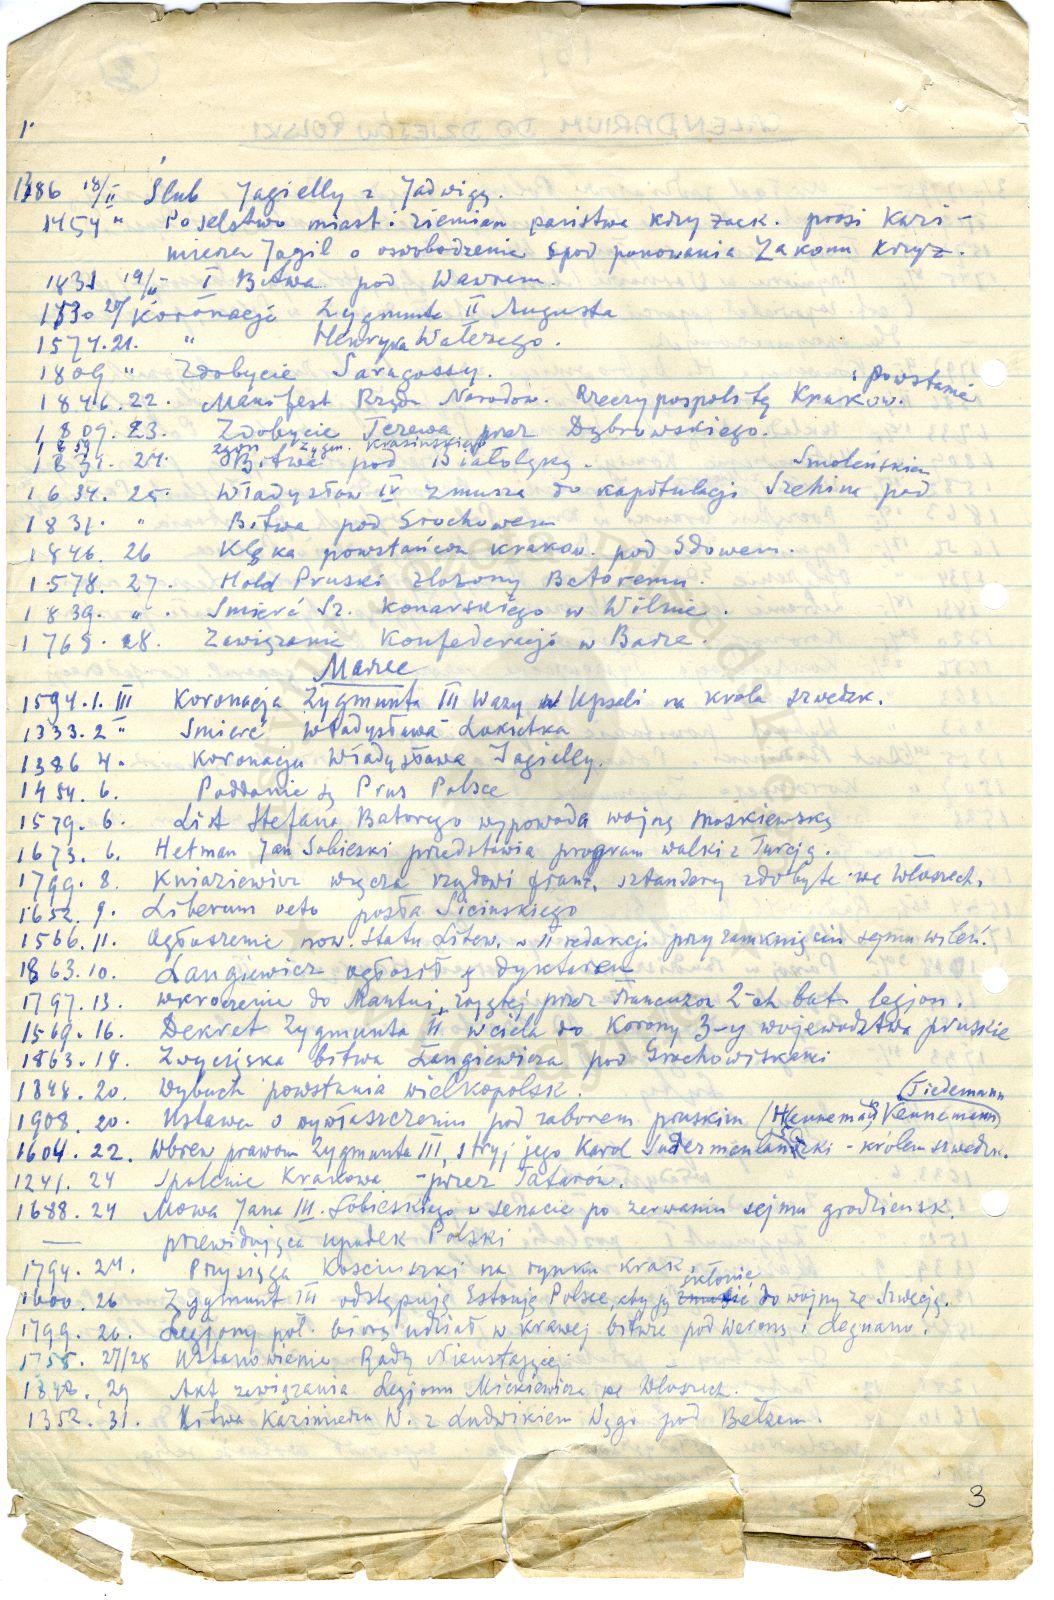 1386 18/II Ślub Jagiełły z Jadwigą.
1454 " Poselstwo miast i ziemian państwa krzyżack. prosi Kazi-
mierza Jagiel o oswobodzenie spod panowania Zakonu Krzyż.
1831 19/II I Bitwa pod Wawrem.
1530 20/ Koronacja Zygmunta II Augusta
1574. 21. " Henryka Walezego.
1809 " Zdobycie Saragossy.
i powstanie
1846. 22. Manifest Rządu Narodow. Rzeczypospolitę Krakow.
1809. 23. Zdobycie Tczewa przez Dąbrowskiego.
1859 zgon Zygm. Krasińskiego
1831. 24. Bitwa pod Białołęką.
Smoleńskiem
1634. 25. Władysław IV zmusza do kapitulacji Szehina pod
1831. " Bitwa pod Grochowem
1846. 26 Klęska powstańców krakow. pod Gdowem.
1578. 27. Hołd Pruski złożony Batoremu.
1839. " Śmierć Sz. Konarskiego w Wilnie.
1768. 28. Zawiązanie Konfederacji w Barze.
Marzec
1594. 1. III Koronacja Zygmunta III Wazy w Upsali na króla szwedzk.
1333. 2 " Śmierć Władysława Łokietka
1386 4. Koronacja Władysława Jagiełły.
1454. 6. Poddanie się Prus Polsce
1579. 6. List Stefana Batorego wypowiada wojnę moskiewską
1673. 6. Hetman Jan Sobieski przedstawia program walki z Turcją.
1799. 8. Kniaziewicz wręcza rządowi franc. sztandary zdobyte we Włoszech.
1652. 9. Liberum veto posła Sicińskiego
1566. 11. Ogłoszenie now. Statu Litew. w II redakcji przy zamknięciu sejmu wileń.
1863. 10. Langiewicz ogłosił się dyktatorem
1797. 13. wkroczenie do Mantui, zajętej przez Francuzów 2-ch bat. legjon.
1569. 16. Dekret Zygmunta II wciela do Korony 3-y województwa pruskie
1863. 18. Zwycięska bitwa Langiewicza pod Grochowiskami
1848. 20. Wybuch powstania wielkopolsk.
(Tiedemann
1908. 20. Ustawa o wywłaszczeniu pod zaborem pruskim (Hennemann, Kennemann)
1604. 22. Wbrew prawom Zygmunta III, stryj jego Karol Sudermanlandzki - królem szwedzk.
1241. 24 Spalenie Krakowa - przez Tatarów.
1688. 24 Mowa Jana III. Sobieskiego w senacie po zerwaniu sejmu grodzieńsk.
— przewidująca upadek Polski
1794. 24. Przysięga Kościuszki na rynku krak.
skłonić
1600. 26 Zygmunt III odstępuje Estonię Polsce, aby ją do wojny ze Szwecją.
1799. 26. Legjony pol. biorą udział w krwawej bitwie pod Weroną i Legnano.
1755. 27/28 Ustanowienie Rady Nieustającej
1848. 29 Akt zawiązania Legjonu Mickiewicza we Włoszech.
1352. 31. Bitwa Kazimierza W. z Ludwikiem Węg. pod Bełzem.
3